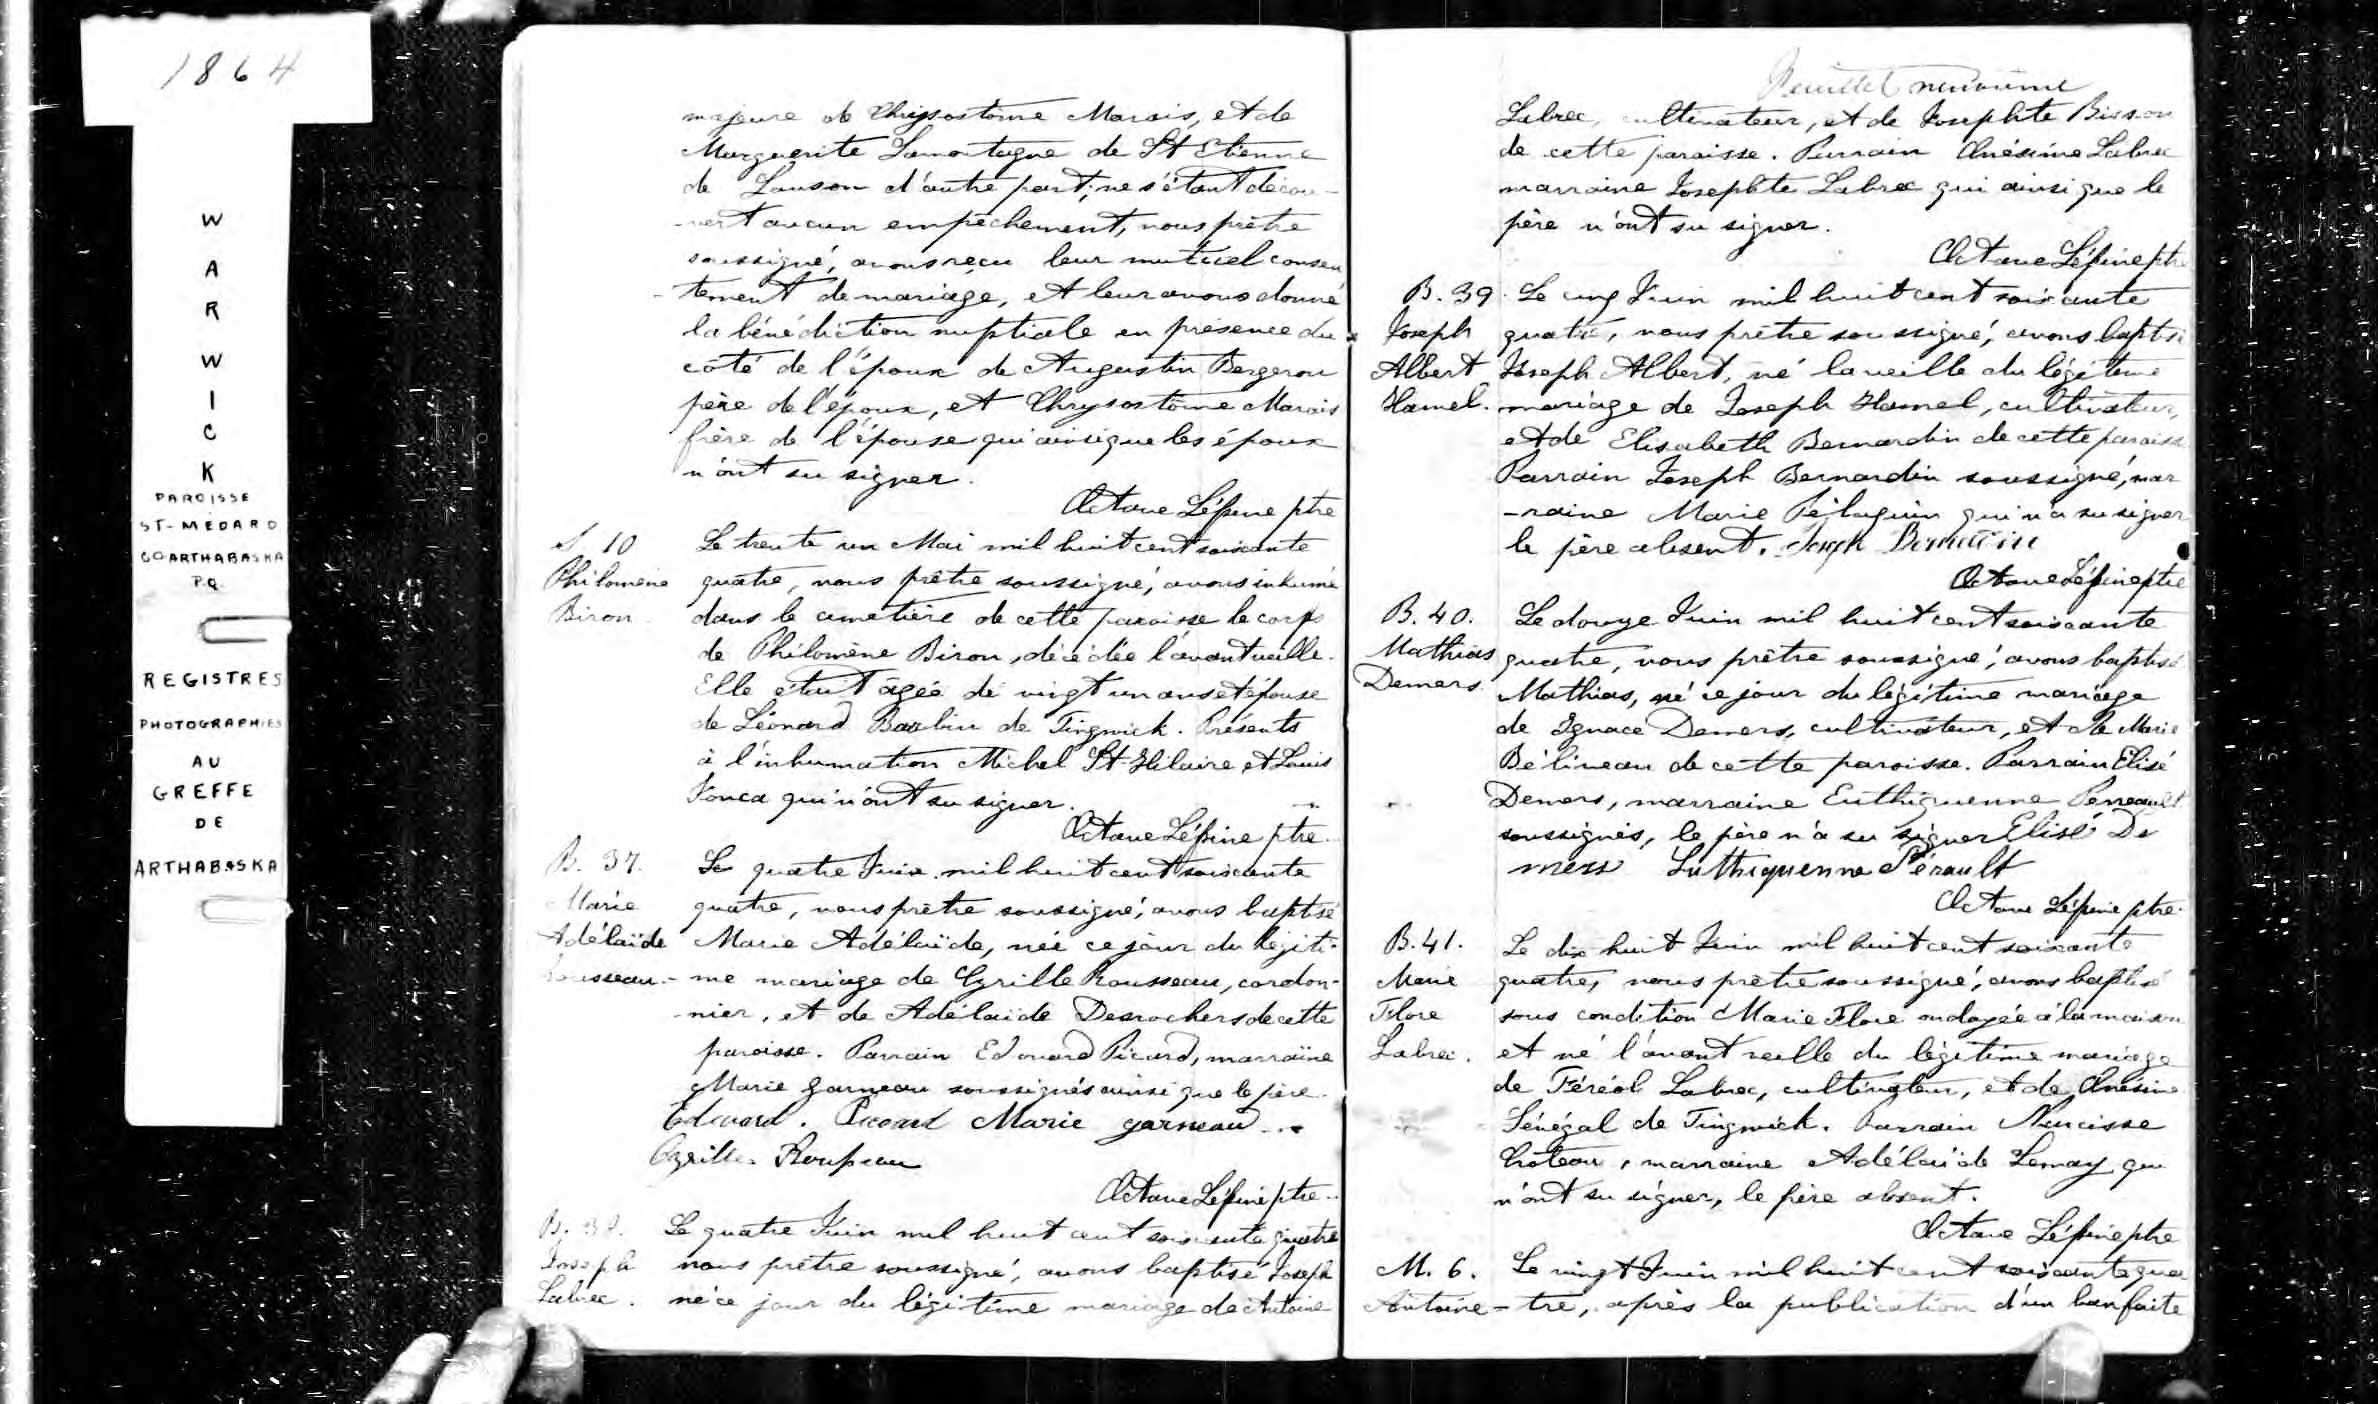 1864
W
A
R
W
I
C
K
PAROISSE
ST-MEDARD
CO ARTHABASKA
P.Q.
REGISTRES
PHOTOGRAPHIES
AU
GREFFE
DE
ARTHABASKA
majeure de Chrysostôme Marois, et de
Marguerite Lamontagne de St Etienne
de Lauson d'autre part; ne s'étant décou-
-vert aucun empêchement, nous prêtre
soussigné, avons reçu leur mutuel consen
-tement de mariage, et leur avons donné
la bénédiction nuptiale en présence du
côté de l'époux de Augustin Bergeron
père de l'époux, et Chrysostôme Marois
frère de l'épouse qui ainsi que les époux
n'ont su signer.
Octave Lépine ptre
S 10
Philomène
Biron
Le trente un Mai mil huit cent soixante
quatre, nous prêtre soussigné, avons inhumé
dans le cimetière de cette paroisse le corps
de Philomène Biron, décédée l'avant veille.
Elle était âgée de vingt un ans et épouse
de Léonard de Tingwick. Présents
à l'inhumation Michel St-Hilaire et Louis
qui n'ont su signer.
Octave Lépine ptre.
B. 37.
Marie
Adélaïde
Rousseau.
Le quatre Juin mil huit cent soixante
quatre, nous prêtre soussigné, avons baptisé
Marie Adélaïde, née ce jour du légiti-
me mariage de Cyrille Rousseau, cordon-
-nier, et de Adélaïde Desrochers de cette
paroisse. Parrain Edouard Picard, marraine
Marie Garneau soussignés ainsi que le père.
Edouard. Picard Marie garneau
Cyrille Rousseau
Octave Lépine ptre.
B. 38.
Joseph
Labrec.
Le quatre Juin mil huit cent soixante quatre
nous prêtre soussigné, avons baptisé Joseph
né ce jour du légitime mariage de Antoine
Feuillet neuvième
Labrec, cultivateur, et de Josephte Bisson
de cette paroisse. Parrain Onésime Labrec
marraine Josephte Labrec qui ainsi que le
père n'ont su signer.
Octave Lépine ptre
B. 39.
Joseph
Albert
Hamel.
Le cinq Juin mil huit cent soixante
quatre, nous prêtre soussigné, avons baptisé
Joseph Albert, né la veille du légitime
mariage de Joseph Hamel, cultivateur,
et de Elisabeth Bernardin de cette paroisse
Parrain Joseph Bernardin soussigné, mar
-raine Marie Péloquin qui n'a su signer
le père absent. Joseph
Octave Lépine ptre
B. 40.
Mathias
Demers
Le douze Juin mil huit cent soixante
quatre, nous prêtre soussigné, avons baptisé
Mathias, né ce jour du légitime mariage
de Ignace Demers, cultivateur, et de Marie
Bélineau de cette paroisse. Parrain Elisé
Demers, marraine Euthiquenne Perreault
soussignés, le père n'a su signer Elisé De
mers Euthiquenne Pérault
Octave Lépine ptre.
B. 41.
Marie
Flore
Labrec.
Le dix huit Juin mil huit cent soixante
quatre, nous prêtre soussigné, avons baptisé
sous condition Marie Flore ondoyée à la maison
et né l'avant veille du légitime mariage
de Féréol Labrec, cultivateur, et de Onésime
Sénégal de Tingwick. Parrain Narcisse
Croteau, marraine Adélaïde Lemay qui
n'ont su signer, le père absent.
Octave Lépine ptre
M. 6.
Antoine
Le vingt Juin mil huit cent soixante qua
-tre, après la publication d'un ban faite